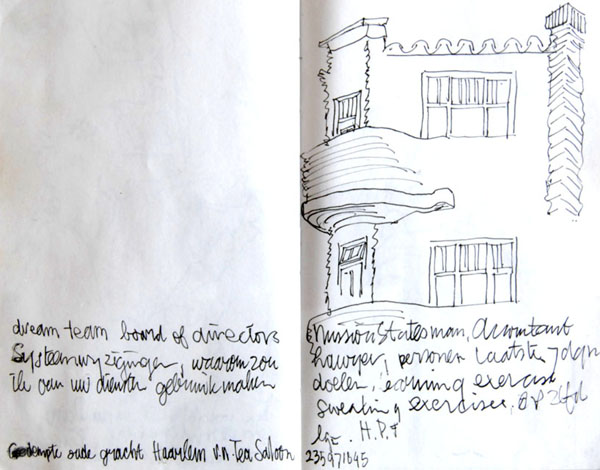 dream team board of directors
Systeemwijzigingen, waarom zou
ik van uw diensten gebruik maken
Gedempte oude gracht Haarlem v.n. Tea Saloon
missionStatesman, Accountant
Lawyer, personen laatste 7 dgn
doelen, earning exercise
sweating exercises,
H.P.T
235971645